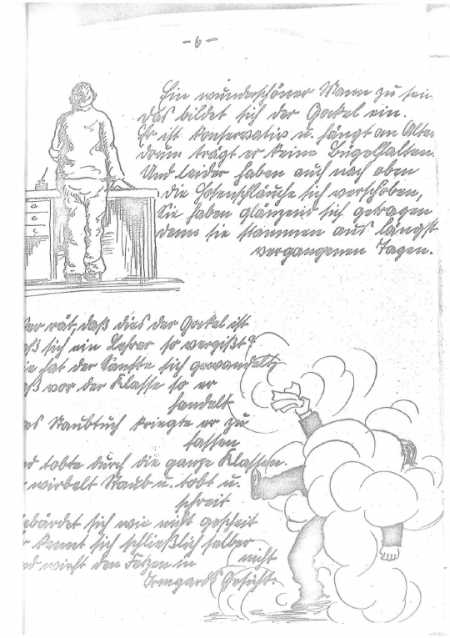 - 6 -
Ein wunderschöner Mann zu sein
das bildet sich der Gockel ein.
Er ist konservativ u. hängt an Alte
drum trägt er keine Bügelfalten.
Und leider haben auch nach oben
die Hosenschläuche sich verschoben,
Sie haben glänzend sich getragen
denn sie stammen aus längst
vergangenen Tagen.
er rät, daß dies der Gockel ist
aß sich ein Lehrer so vergißt?
ie hat der Sanfte sich gewandelt,
aß vor der Klasse so er
handelt
as Staubtuch kriegte er zu
fassen
nd tobte durch die ganze Klassen.
r wirbelt Staub u. tobt u.
schreit
gebärdet sich wie nicht gescheit
r kennt sich schließlich selber
nicht
nd wirft den Fetzen in
Irmgards Gesicht.